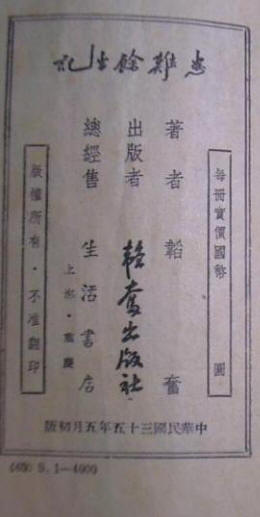 患難餘生記
每冊實價國幣 圓
著者 韜奮
出版者 韜奮出版社
總經售 生活書店
上海·重慶
版權所有·不准翻印
中華民國三十五年五月初版
(469) S.1—4000